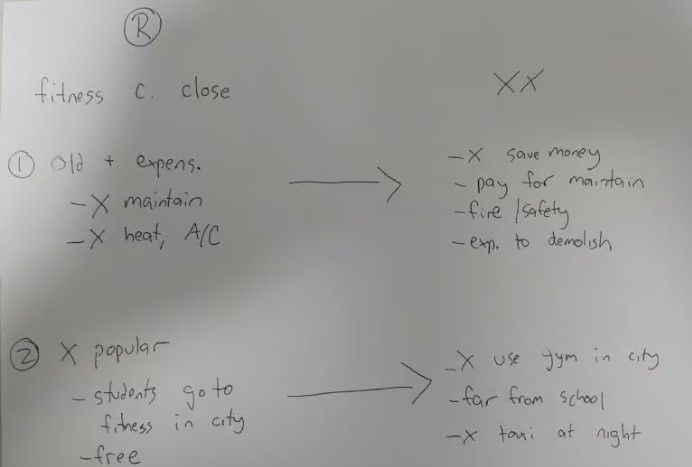 R
fitness c. close
① Old + expens.
-X maintain
-X heat, A/C
② X popular
-students go to
fitness in city
-free
XX
-X save money
- pay for maintain
-fire/safety
-exp. to demolish
-X use gym in city
-far from school
-X taxi at night